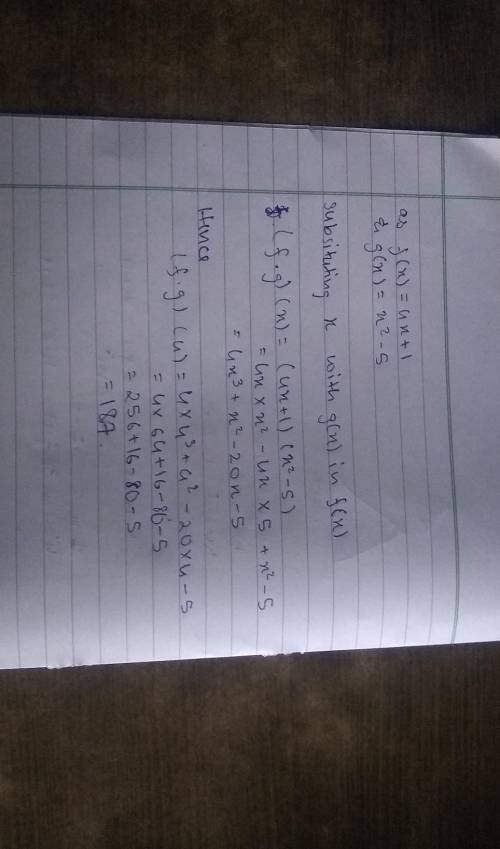 as f(x) = 4x+1
& g(x) = x² - 5
Subsituting x with g(x) in f(x)
(f.g) (x) = (4x+1) (x²-5)
= 4x × x² - 4x × 5 + x² - 5
= 4x³ + x² - 20x - 5
Hence
(f.g) (4) = 4×4³ + 4² - 20×4 - 5
= 4×64+16-80-5
= 256+16-80-5
= 187.